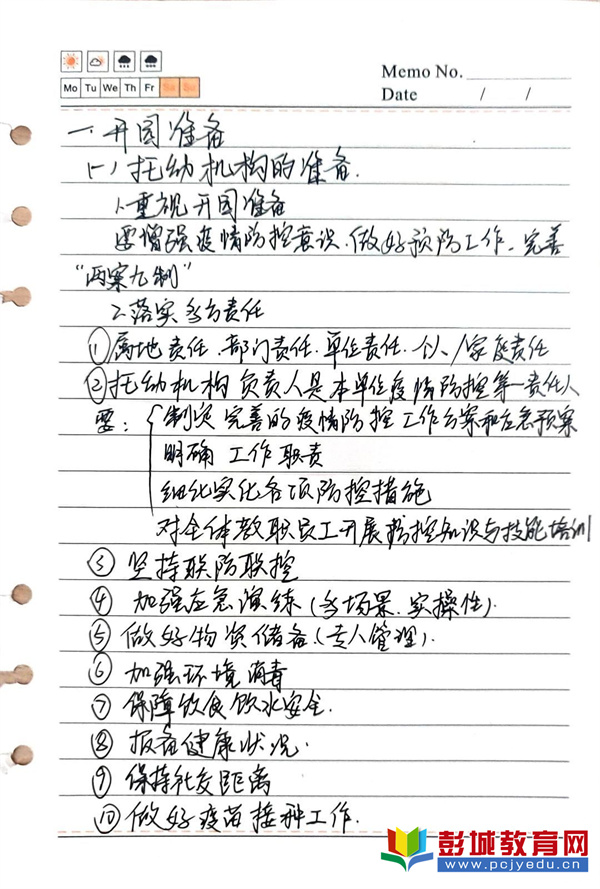 Memo No.
Mo Tu We Th Fr Sa Su
Date / /
一.开园准备
(一)托幼机构的准备.
1.重视开园准备
要增强疫情防控意识.做好预防工作.完善
"两案九制"
2.落实多方责任
①属地责任.部门责任.单位责任.个人/家庭责任
②托幼机构负责人是本单位疫情防控第一责任人
要:制定完善的疫情防控工作方案和应急预案
明确工作职责
细化实化各项防控措施
对全体教职员工开展防控知识与技能培训
③坚持联防联控
④加强应急演练(多场景.实操性).
⑤做好物资储备.(专人管理).
⑥加强环境消毒
⑦保障饮食饮水安全.
⑧报备健康状况.
⑨保持社交距离
⑩做好疫苗接种工作.
彭城教育网
www.pcjyedu.cn